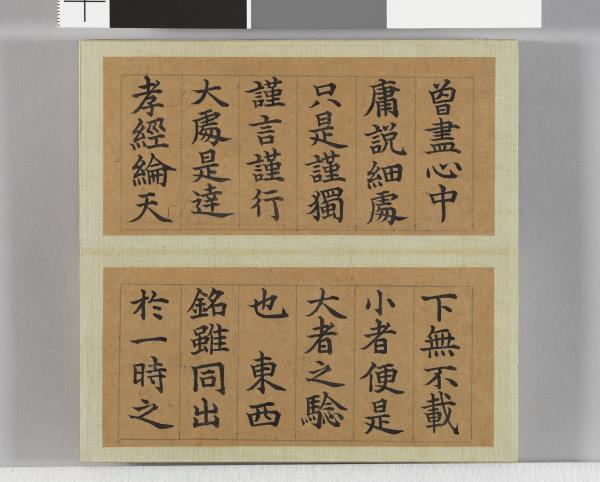 曾盡心中
庸説細處
只是謹獨
謹言謹行
大處是達
孝經綸天
下無不載
小者便是
大者之騐
也 東西
銘雖同出
於一時之